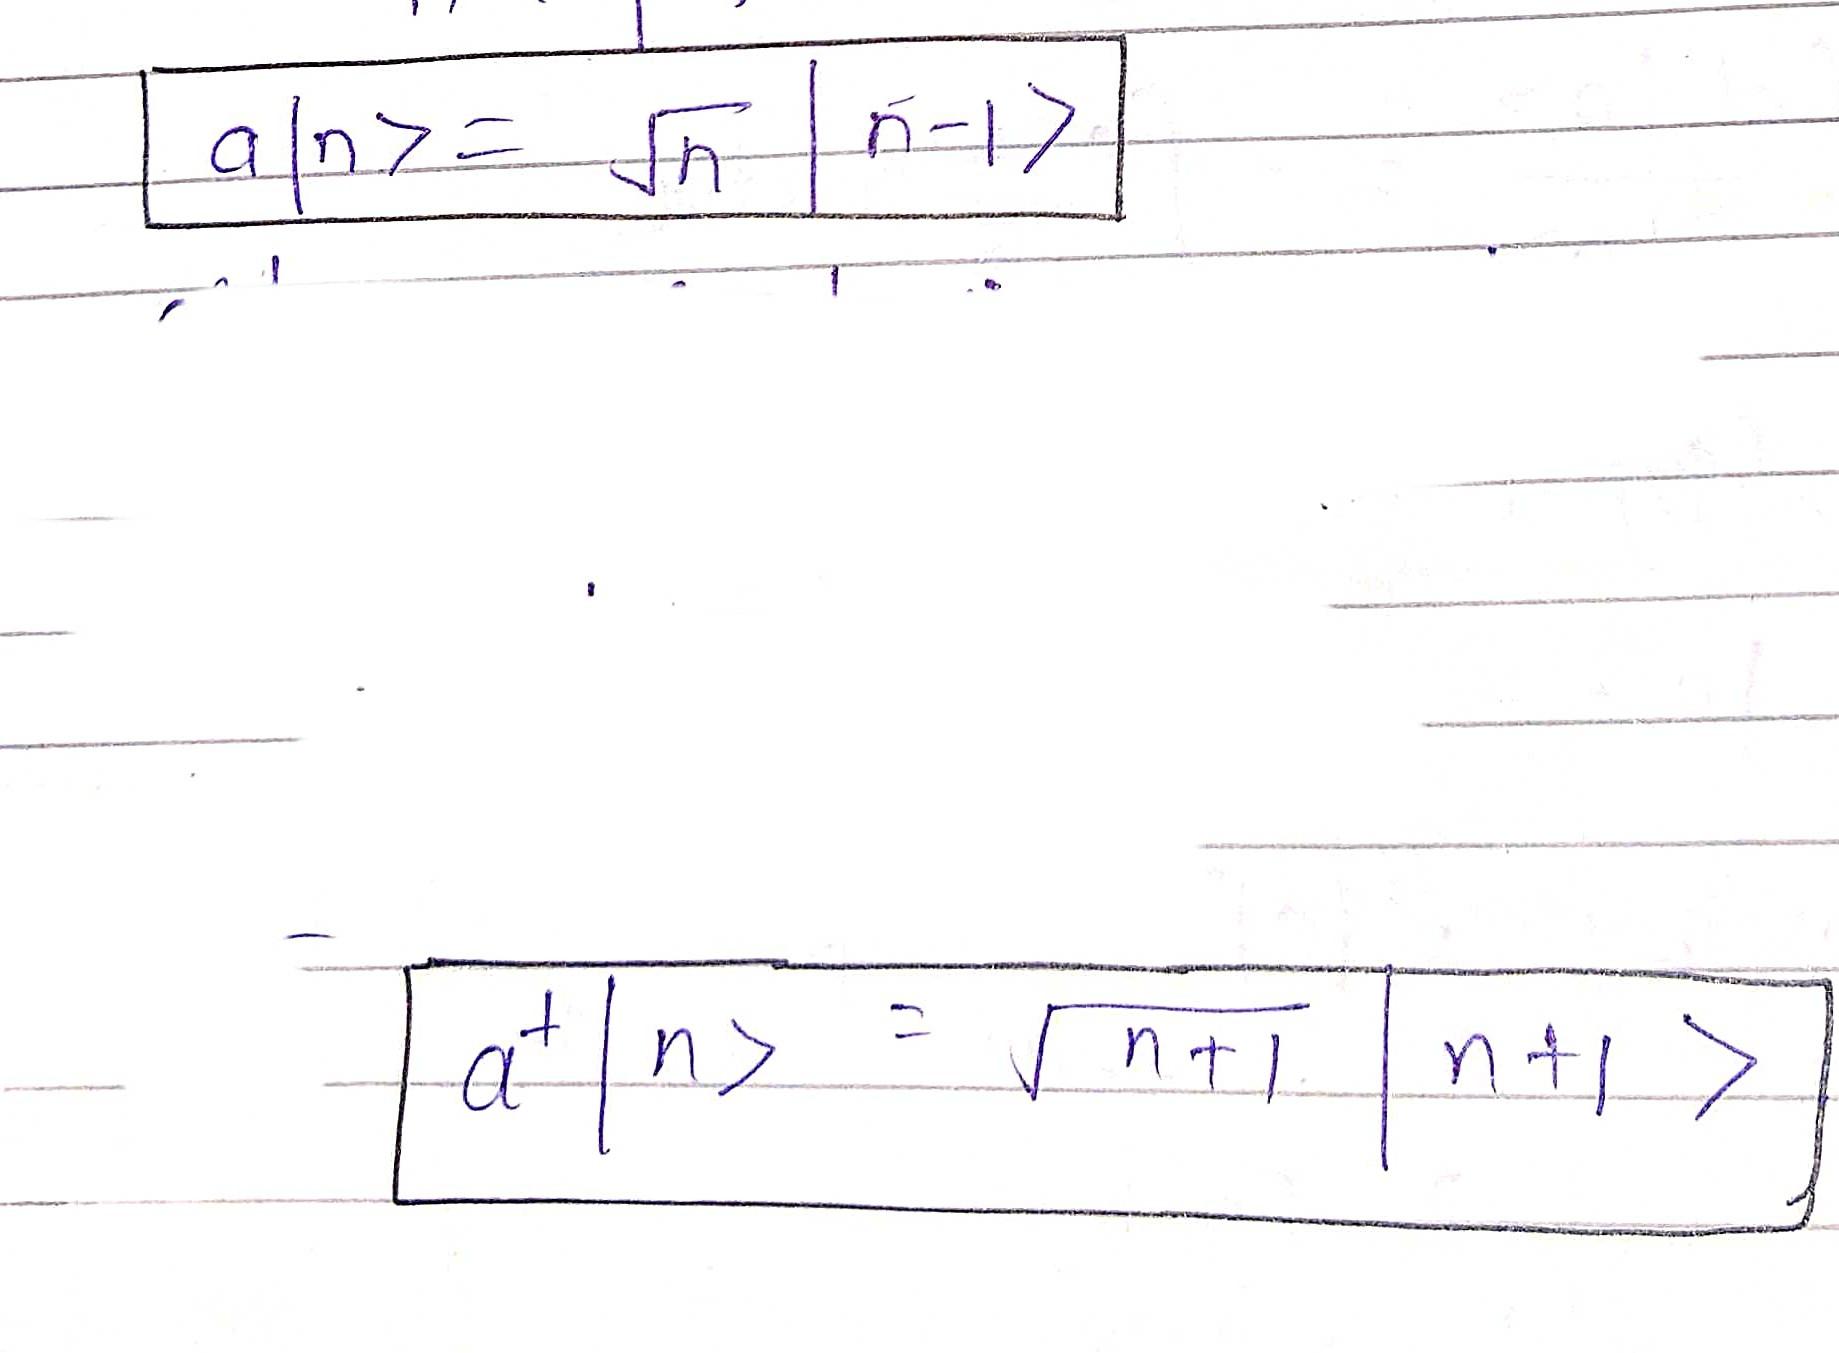 a|n> = √n |n-1>
a⁺|n> = √(n+1) |n+1>